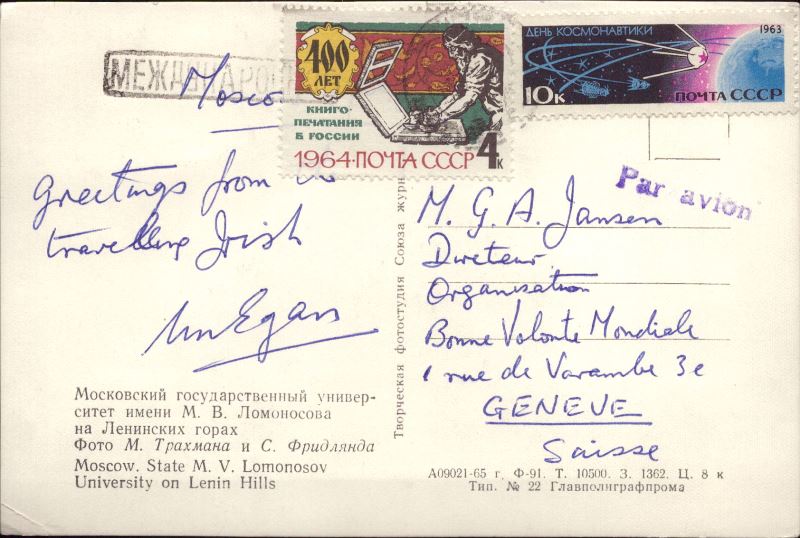 МЕЖДУНАРОД
400
ЛЕТ
КНИГО-
ПЕЧАТАНИЯ
В РОССИИ
1964·ПОЧТА СССР 4К
ДЕНЬ КОСМОНАВТИКИ 1963
10К ПОЧТА СССР
Par avion
Greetings from
travelling Irish
Egan
Московский государственный универ-
ситет имени М. В. Ломоносова
на Ленинских горах
Фото М. Трахмана и С. Фридлянда
Moscow. State M. V. Lomonosov
University on Lenin Hills
Творческая фотостудия Союза журн
M. G. A. Jansen
Direteur
Organisation
Bonne Volonte Mondiale
1 rue de Varambe 3e
GENEVE
Suisse
А09021-65 г. Ф-91. Т. 10500. З. 1362. Ц. 8 к
Тип. № 22 Главполиграфпрома